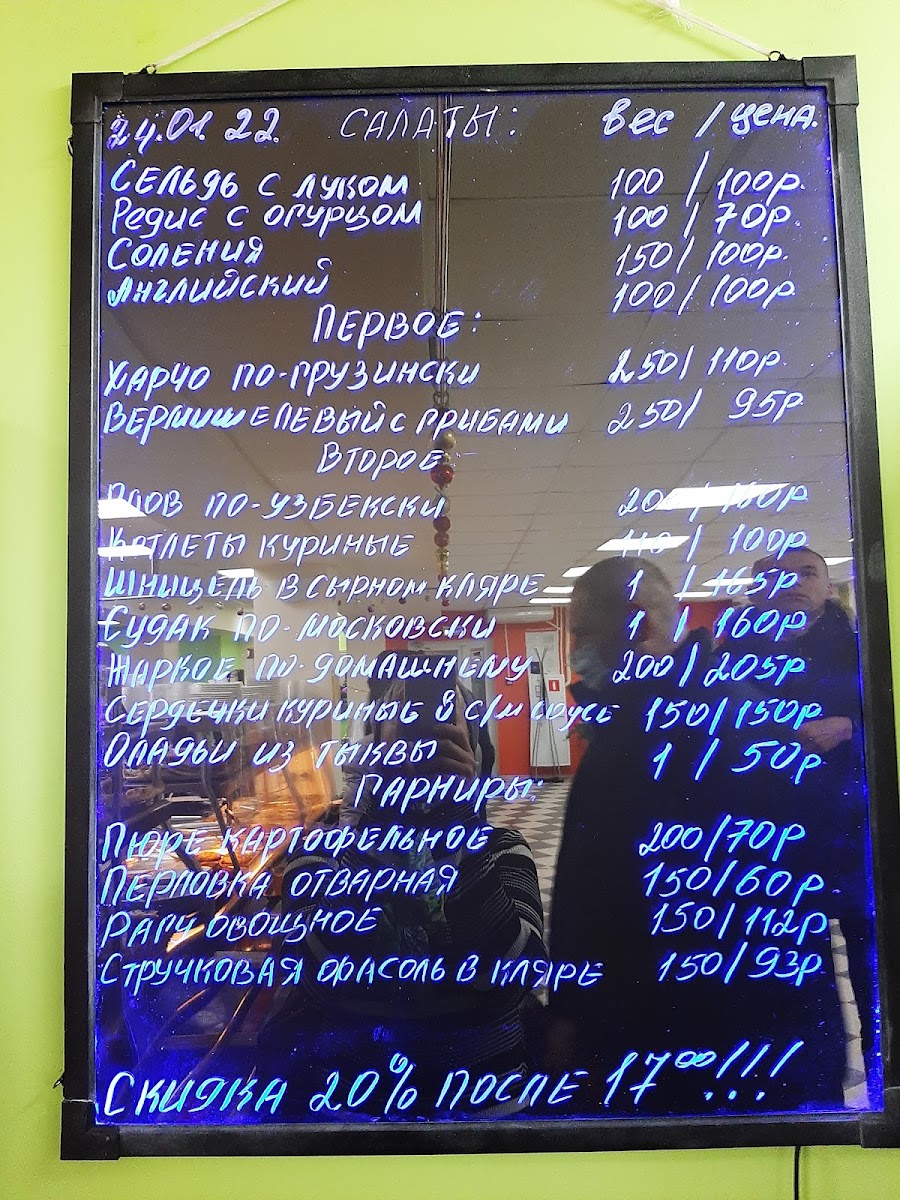 24.01.22. САЛАТЫ: вес / цена.
Сельдь с луком 100 / 100р.
Редис с огурцом 100 / 70р.
Соления 150 / 100р.
Английский 100 / 100р.
Первое:
Харчо по-грузински 250 / 110р.
Вермишелевый с грибами 250 / 95р
Второе:-
Плов по-узбекски 200 / 160р
Котлеты куриные 110 / 100р
Шницель в сырном кляре 1 / 165р
Судак по-московски 1 / 160р
Жаркое по-домашнему 200 / 205р
Сердечки куриные в с/м соусе 150 / 150р
Оладьи из тыквы 1 / 50р
Гарниры:
Пюре картофельное 200 / 70р
Перловка отварная 150 / 60р.
Рагу овощное 150 / 112р
Стручковая фасоль в кляре 150 / 93р
Скидка 20% после 17⁰⁰!!!